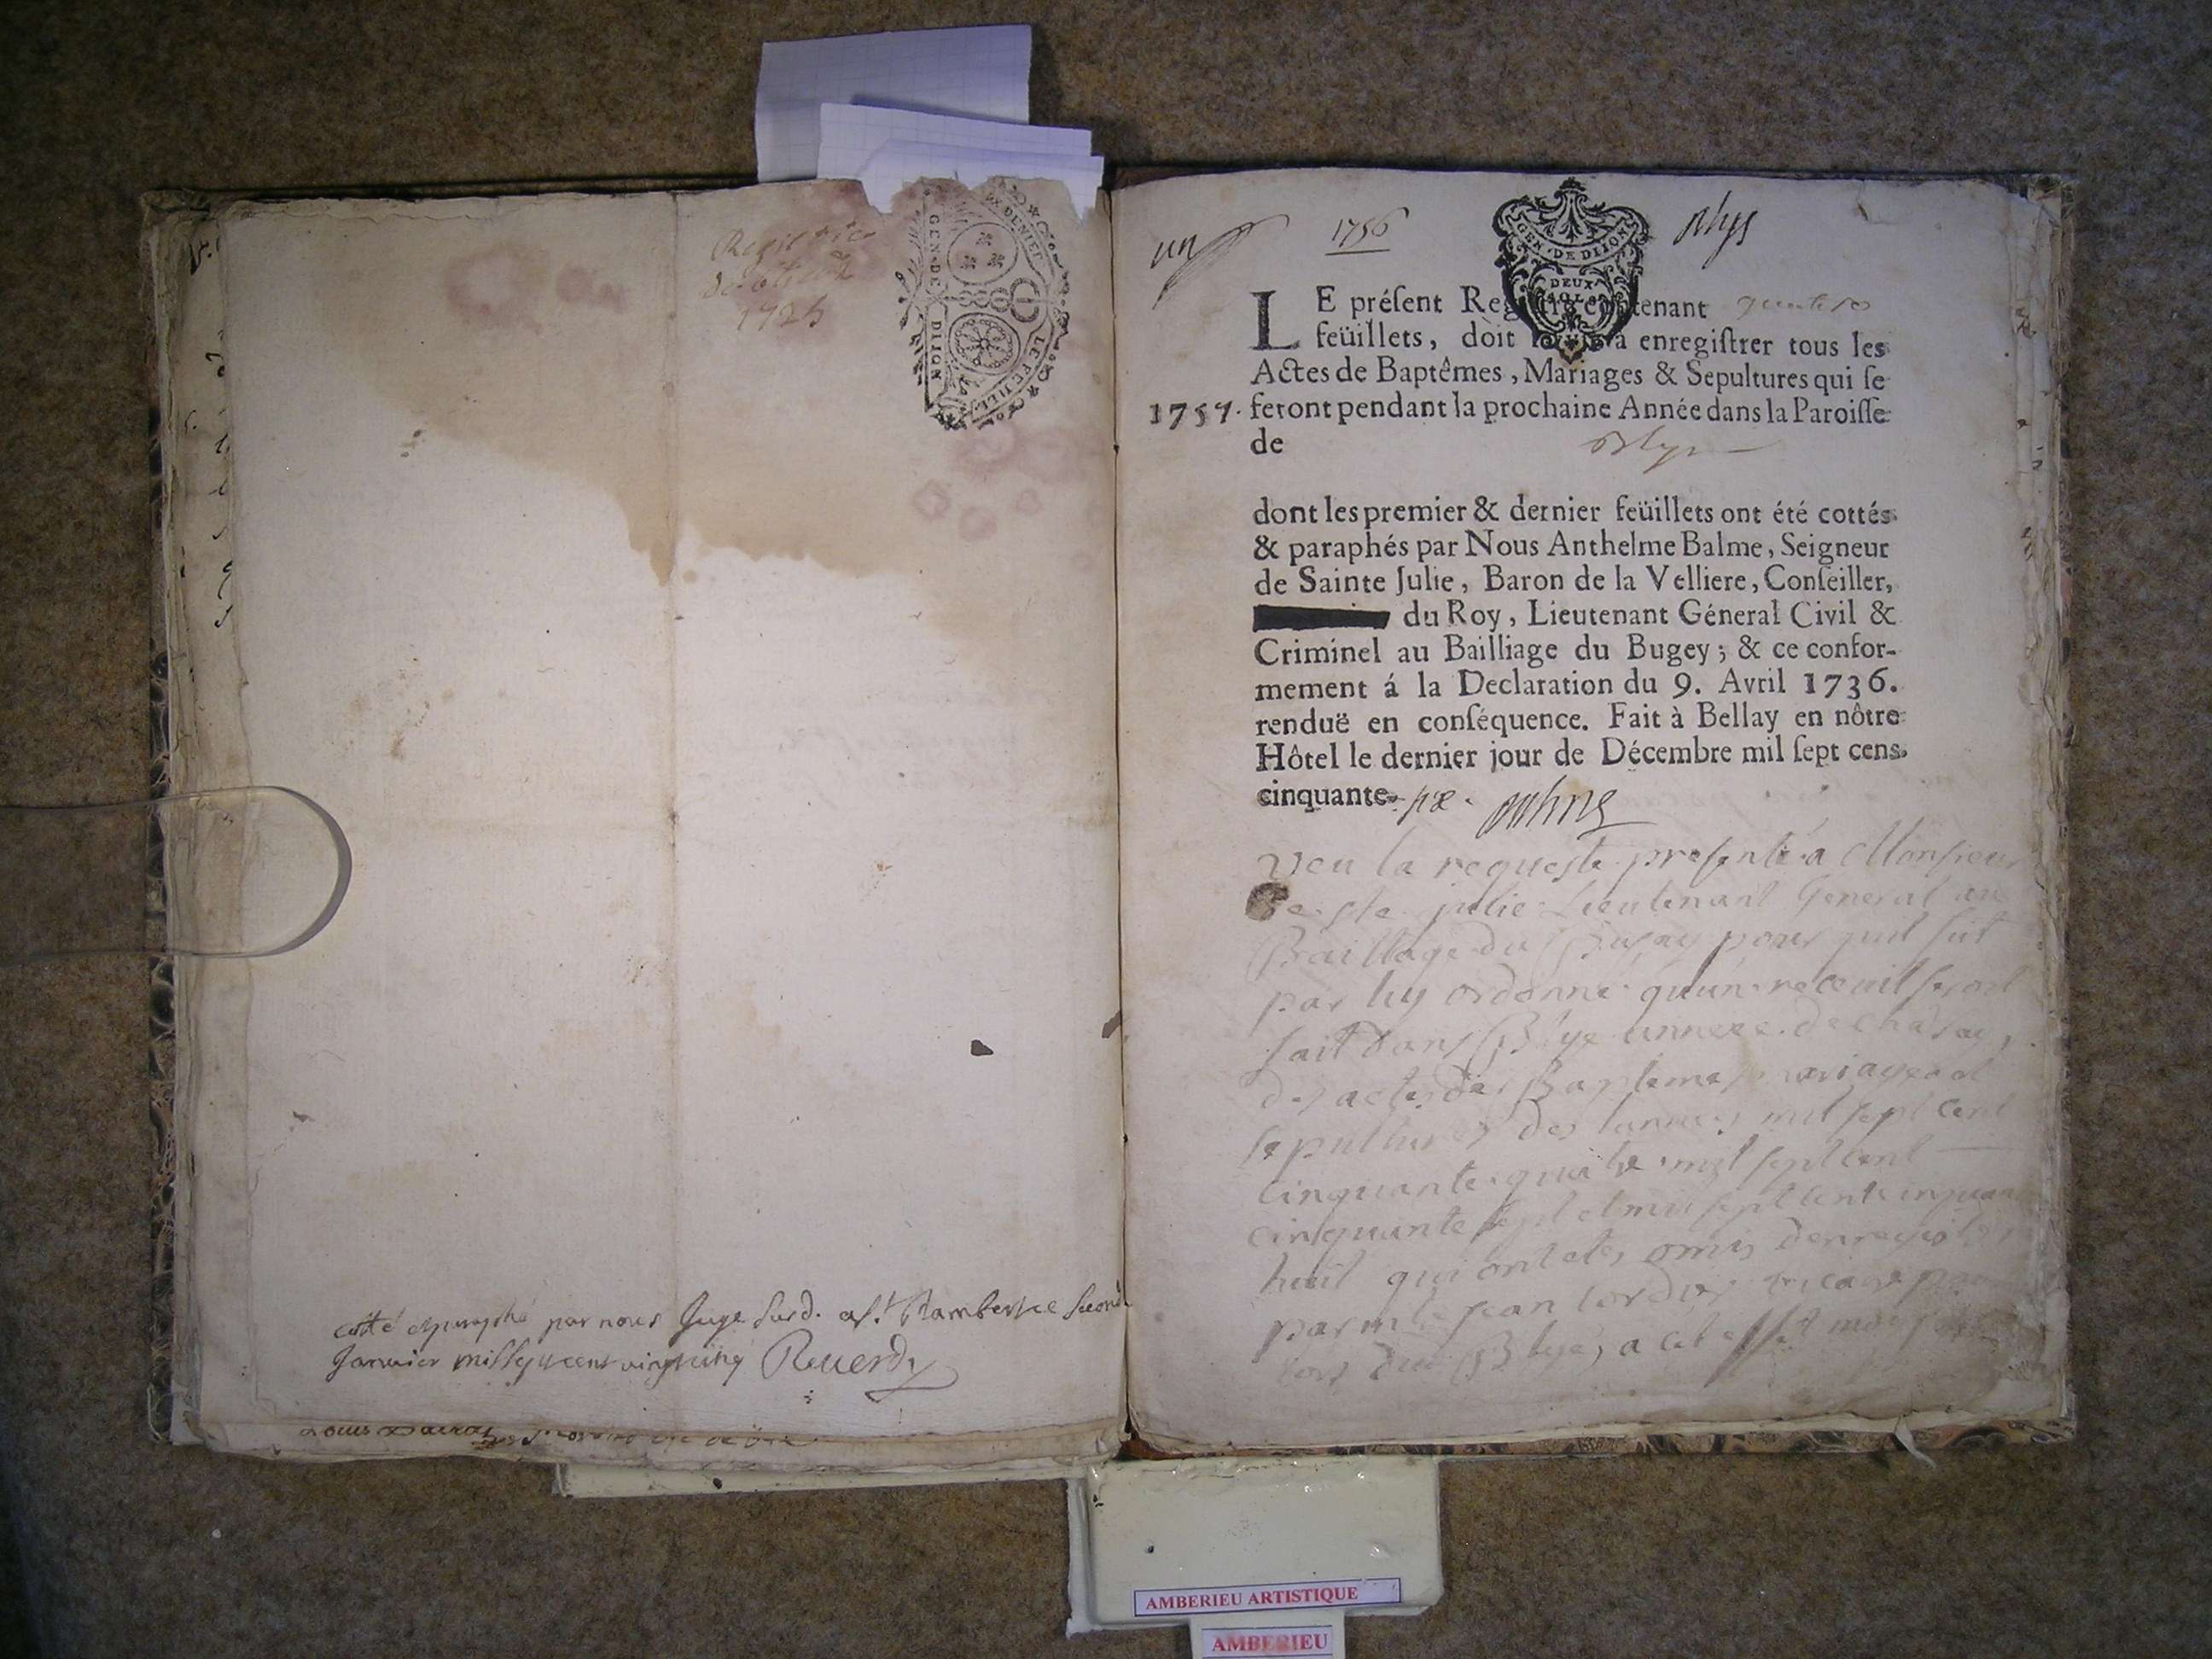 Registre
1725
GEN·DE DIJON
LE FEUILL
cotté et paraphé par nous Juge Sard. a St Rambert ce second
Janvier mil sept cens vingt cinq Reverdy
un
1756
Blys
GEN·DE DIJON
DEUX
SOLS
LE préſent Regiſtre contenant
feüillets, doit ſervir à enregiſtrer tous les
Actes de Baptêmes, Mariages & Sepultures qui ſe
1757. feront pendant la prochaine Année dans la Paroiſſe
de Blys
dont les premier & dernier feüillets ont été cottés
& paraphés par Nous Anthelme Balme, Seigneur
de Sainte Julie, Baron de la Velliere, Conſeiller,
du Roy, Lieutenant Géneral Civil &
Criminel au Bailliage du Bugey; & ce confor-
mement á la Declaration du 9. Avril 1736.
renduë en conſéquence. Fait à Bellay en nôtre
Hôtel le dernier jour de Décembre mil ſept cens
cinquante-six.
Veu la requeste presenté a Monsieur
de ste julie Lieutenant General au
Bailliage du Bugay pour quil fut
par luy ordonné quun receuil seroit
fait dans Blye annexe de chasay,
des actes de Baptemes mariages et
sepultures des années mil sept cent
cinquante quatre mil sept cent
cinquante sept et mil sept cent cinquante
huit qui ont etes omis denregistrer
par mre jean vicaire pour
lors du Blye, a cet effet
AMBERIEU ARTISTIQUE
AMBERIEU